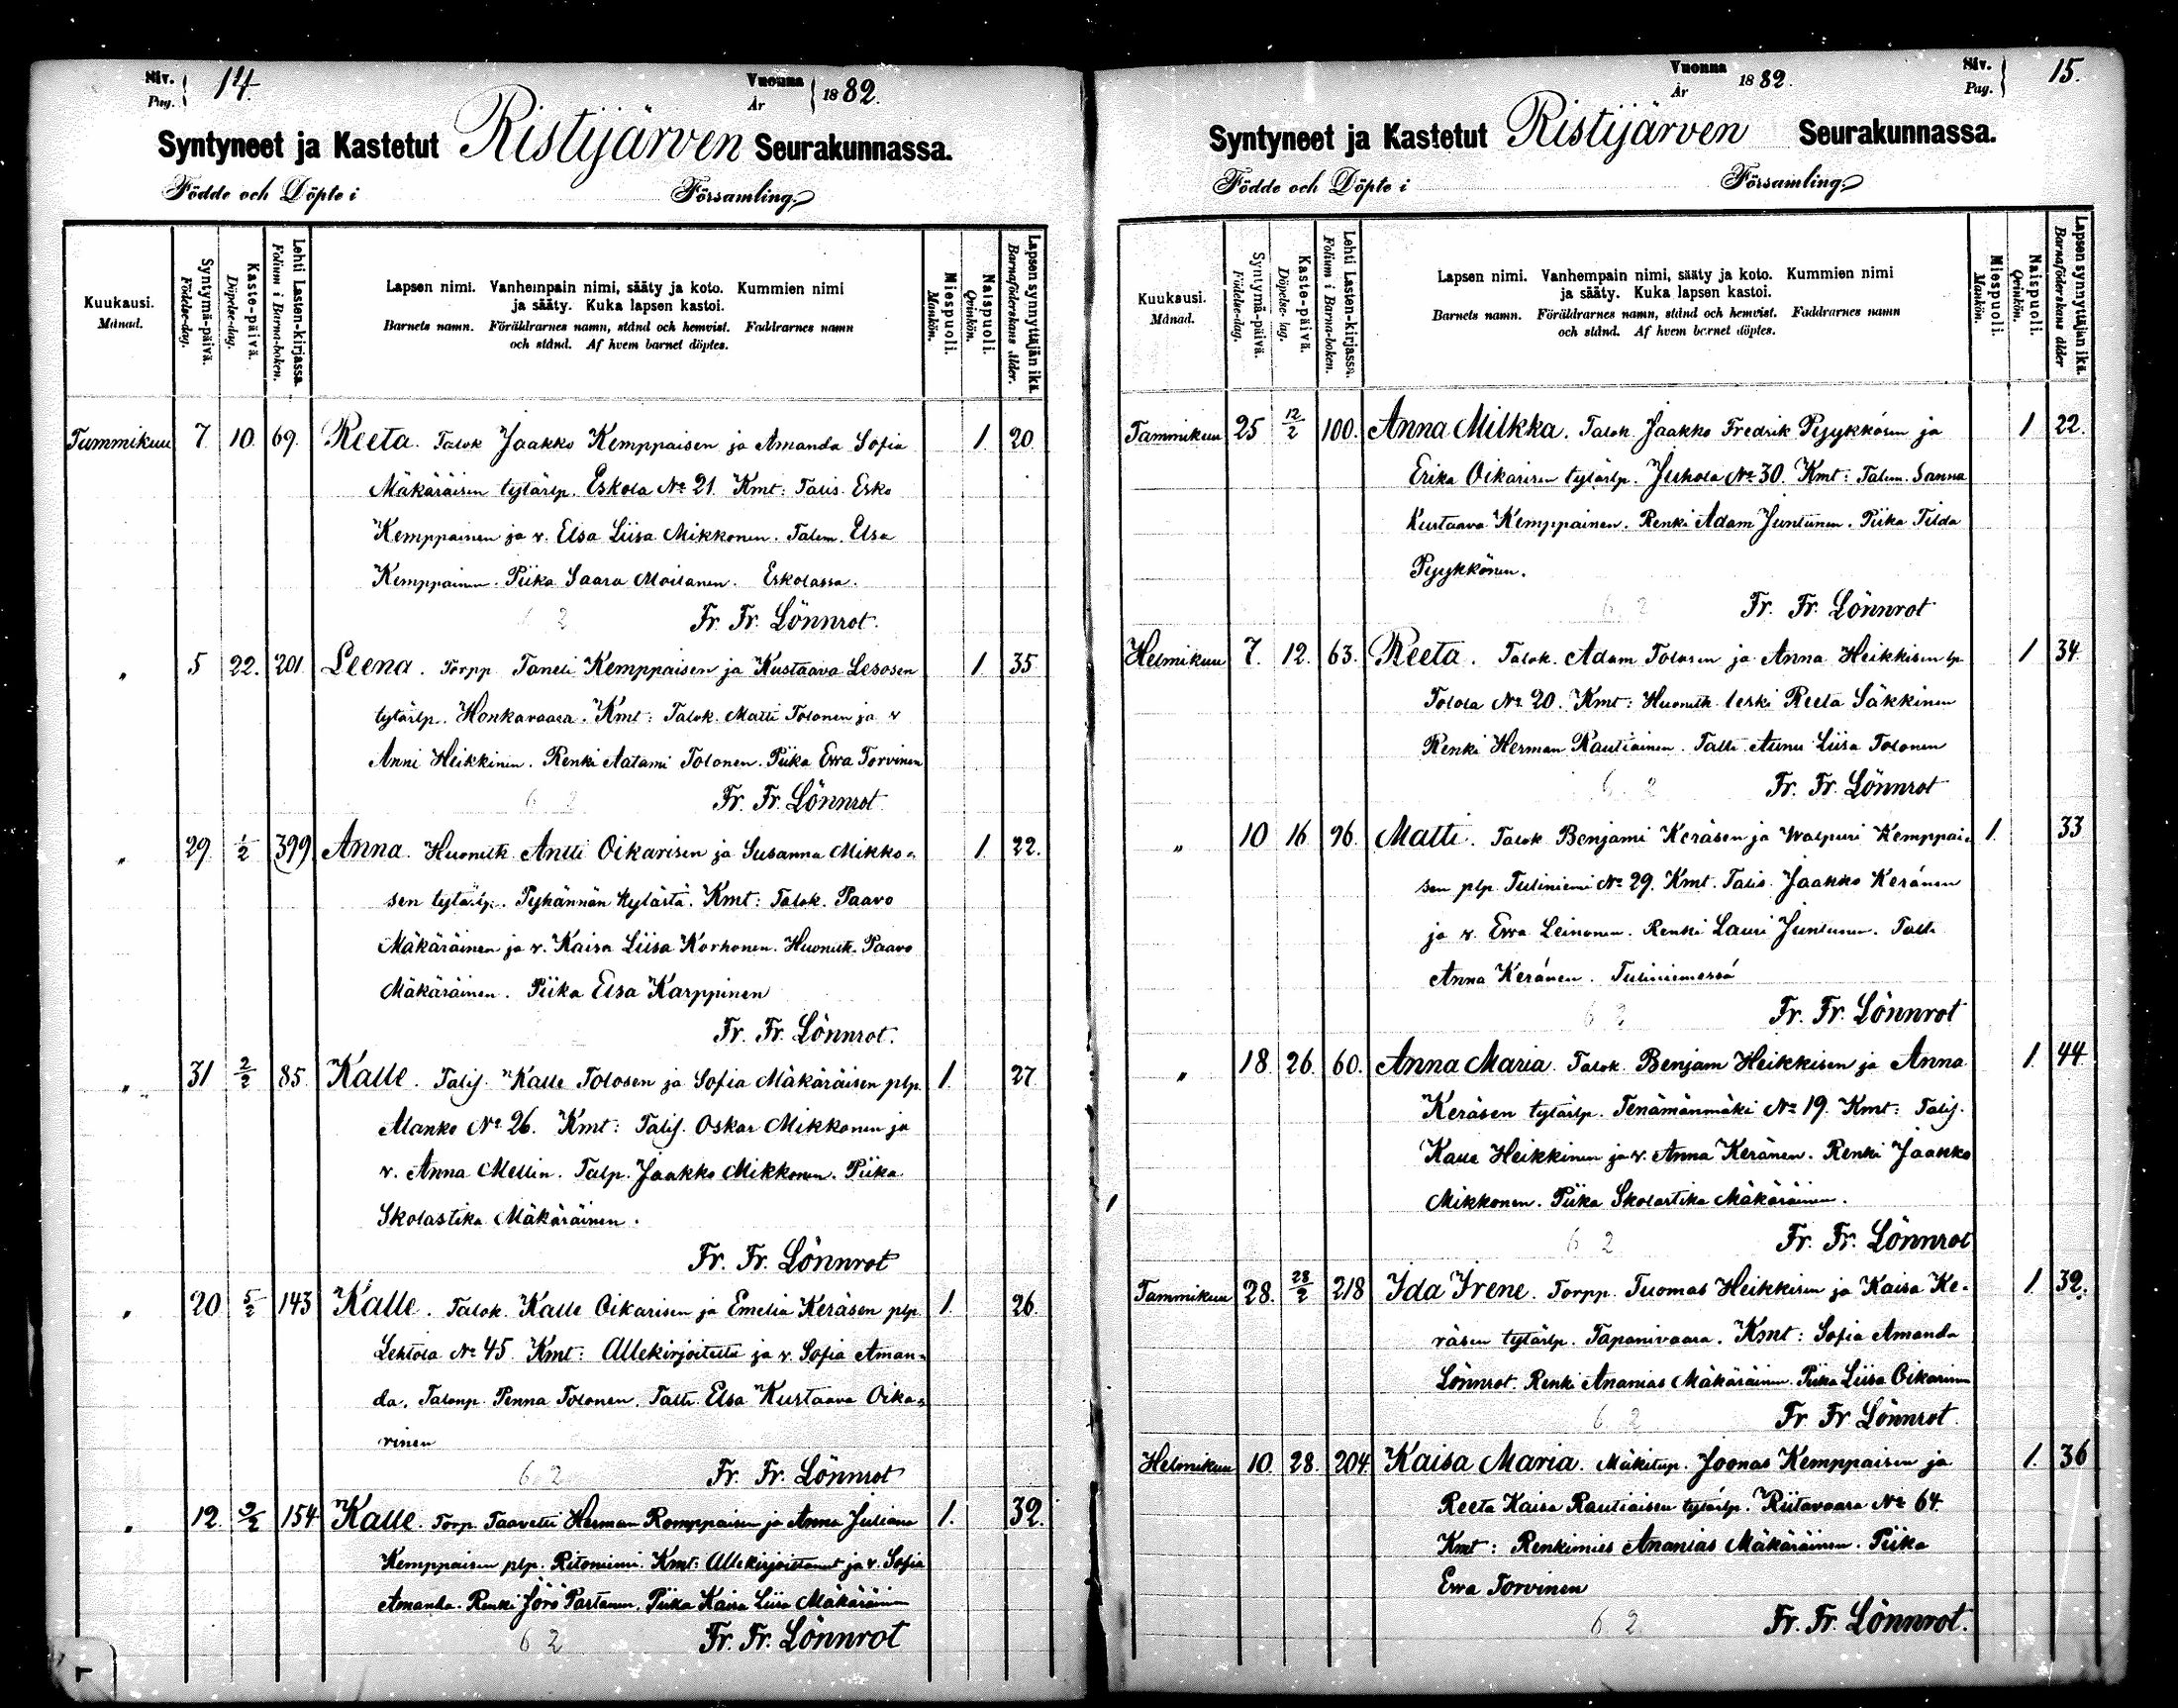 Siv. Pag. 14.
Vuonna År 1882.
Syntyneet ja Kastetut Ristijärven Seurakunnassa.
Födde och Döpte i Församling.
Kuukausi. Månad.
Syntymä-päivä. Födelse-dag.
Kaste-päivä. Döpelse-dag.
Lehti Lasten-kirjassa. Folium i Barna-boken.
Lapsen nimi. Vanhempain nimi, sääty ja koto. Kummien nimi
ja sääty. Kuka lapsen kastoi.
Barnets namn. Föräldrarnes namn, stånd och hemvist. Faddrarnes namn
och stånd. Af hvem barnet döptes.
Miespuoli. Mankön.
Naispuoli. Qvinkön.
Lapsen synnyttäjän ikä. Barnaföderskans ålder.
Tammikuu 7 10. 69. Reeta. Talok Jaakko Kemppaisen ja Amanda Sofia 1. 20
Mäkäräisen tytärlp. Eskola No 21. Kmt: Talis. Esko
Kemppainen ja v. Elsa Liisa Mikkonen. Talem. Elsa
Kemppainen. Piika Saara Moilanen. Eskolassa.
6 2 Fr. Fr. Lönnrot.
" 5 22. 201 Leena. Torpp Taneli Kemppaisen ja Kustaava Lesosen 1. 35
tytärlp. Honkavaara. Kmt: Talok. Matti Tolonen ja v
Anni Heikkinen. Renki Aatami Tolonen. Piika Ewa Torvinen
6 2 Fr. Fr. Lönnrot
" 29 1/2 399 Anna. Huoneth. Antti Oikarisen ja Susanna Mikko= 1. 22.
sen tytärlp. Pyhännän kylästä. Kmt: Talok. Paavo
Mäkäräinen ja v. Kaisa Liisa Korhonen. Huoneth. Paavo
Mäkäräinen. Piika Elsa Karppinen
Fr. Fr. Lönnrot.
" 31 2/2 85 Kalle. Talij. Kalle Tolosen ja Sofia Mäkäräisen plp. 1. 27
Manko No 26. Kmt: Talij. Oskar Mikkonen ja
v. Anna Mellin. Talp. Jaakko Mikkonen. Piika
Skolastika Mäkäräinen.
Fr. Fr. Lönnrot
" 20 5/2 143 Kalle. Talok. Kalle Oikarisen ja Emelia Keräsen plp. 1. 26.
Lehtola No 45. Kmt: Allekirjoitettu ja v. Sofia Aman=
da. Talonp. Penna Tolonen. Taltr. Elsa Kustaava Oika=
rinen
6 2 Fr. Fr. Lönnrot
" 12. 9/2 154 Kalle. Torp. Taavetti Herman Romppaisen ja Anna Juliana 1. 32.
Kemppaisen plp. Ritoniemi. Kmt: Allekirjoittanut ja v. Sofia
Amanda. Renki Jörö Partanen. Piika Kaisa Liisa Mäkäräinen
6 2 Fr. Fr. Lönnrot
Vuonna År 1882.
Siv. Pag. 15.
Syntyneet ja Kastetut Ristijärven Seurakunnassa.
Födde och Döpte i Församling.
Kuukausi. Månad.
Syntymä-päivä. Födelse-dag.
Kaste-päivä. Döpelse-dag.
Lehti Lasten-kirjassa. Folium i Barna-boken.
Lapsen nimi. Vanhempain nimi, sääty ja koto. Kummien nimi
ja sääty. Kuka lapsen kastoi.
Barnets namn. Föräldrarnes namn, stånd och hemvist. Faddrarnes namn
och stånd. Af hvem barnet döptes.
Miespuoli. Mankön.
Naispuoli. Qvinkön.
Lapsen synnyttäjän ikä. Barnaföderskans ålder
Tammikuu 25 12/2 100. Anna Milkka. Talok Jaakko Fredrik Pyykkösen ja 1 22.
Erika Oikarisen tytärlp. Juhola No 30. Kmt: Talem. Sanna
Kustaava Kemppainen. Renki Adam Juntunen. Piika Tilda
Pyykkönen.
6 2 Fr. Fr. Lönnrot
Helmikuu 7. 12. 63. Reeta. Talok. Adam Tolosen ja Anna Heikkisen lp 1 34.
Tolola No 20. Kmt: Huoneth. leski Reeta Säkkinen
Renki Herman Rautiainen. Taltr. Aunu Liisa Tolonen
6 2 Fr. Fr. Lönnrot
" 10 16 96. Matti. Talok Benjami Keräsen ja Walpuri Kemppai= 1. 33
sen plp. Tuliniemi No 29. Kmt. Talis. Jaakko Keränen
ja v. Ewa Leinonen. Renki Lauri Juntunen. Taltr.
Anna Keränen. Tuliniemessä
6 2 Fr. Fr. Lönnrot
" 18. 26. 60. Anna Maria. Talok. Benjam Heikkisen ja Anna 1. 44
Keräsen tytärlp. Tenämänmäki No 19. Kmt: Talij.
Kalle Heikkinen ja v. Anna Keränen. Renki Jaakko
Mikkonen. Piika Skolastika Mäkäräinen.
6 2 Fr. Fr. Lönnrot
Tammikuu 28. 28/2 218 Ida Irene. Torpp. Tuomas Heikkisen ja Kaisa Ke- 1. 32.
räsen tytärlp. Tapanivaara. Kmt: Sofia Amanda
Lönnrot. Renki Ananias Mäkäräinen. Piika Liisa Oikarinen
6 2 Fr. Fr. Lönnrot.
Helmikuu 10. 28. 204. Kaisa Maria. Mäkitup. Joonas Kemppaisen ja 1. 36
Reeta Kaisa Rautiaisen tytärlp. Riitavaara No 64.
Kmt: Renkimies Ananias Mäkäräinen. Piika
Ewa Torvinen
6 2 Fr. Fr. Lönnrot.